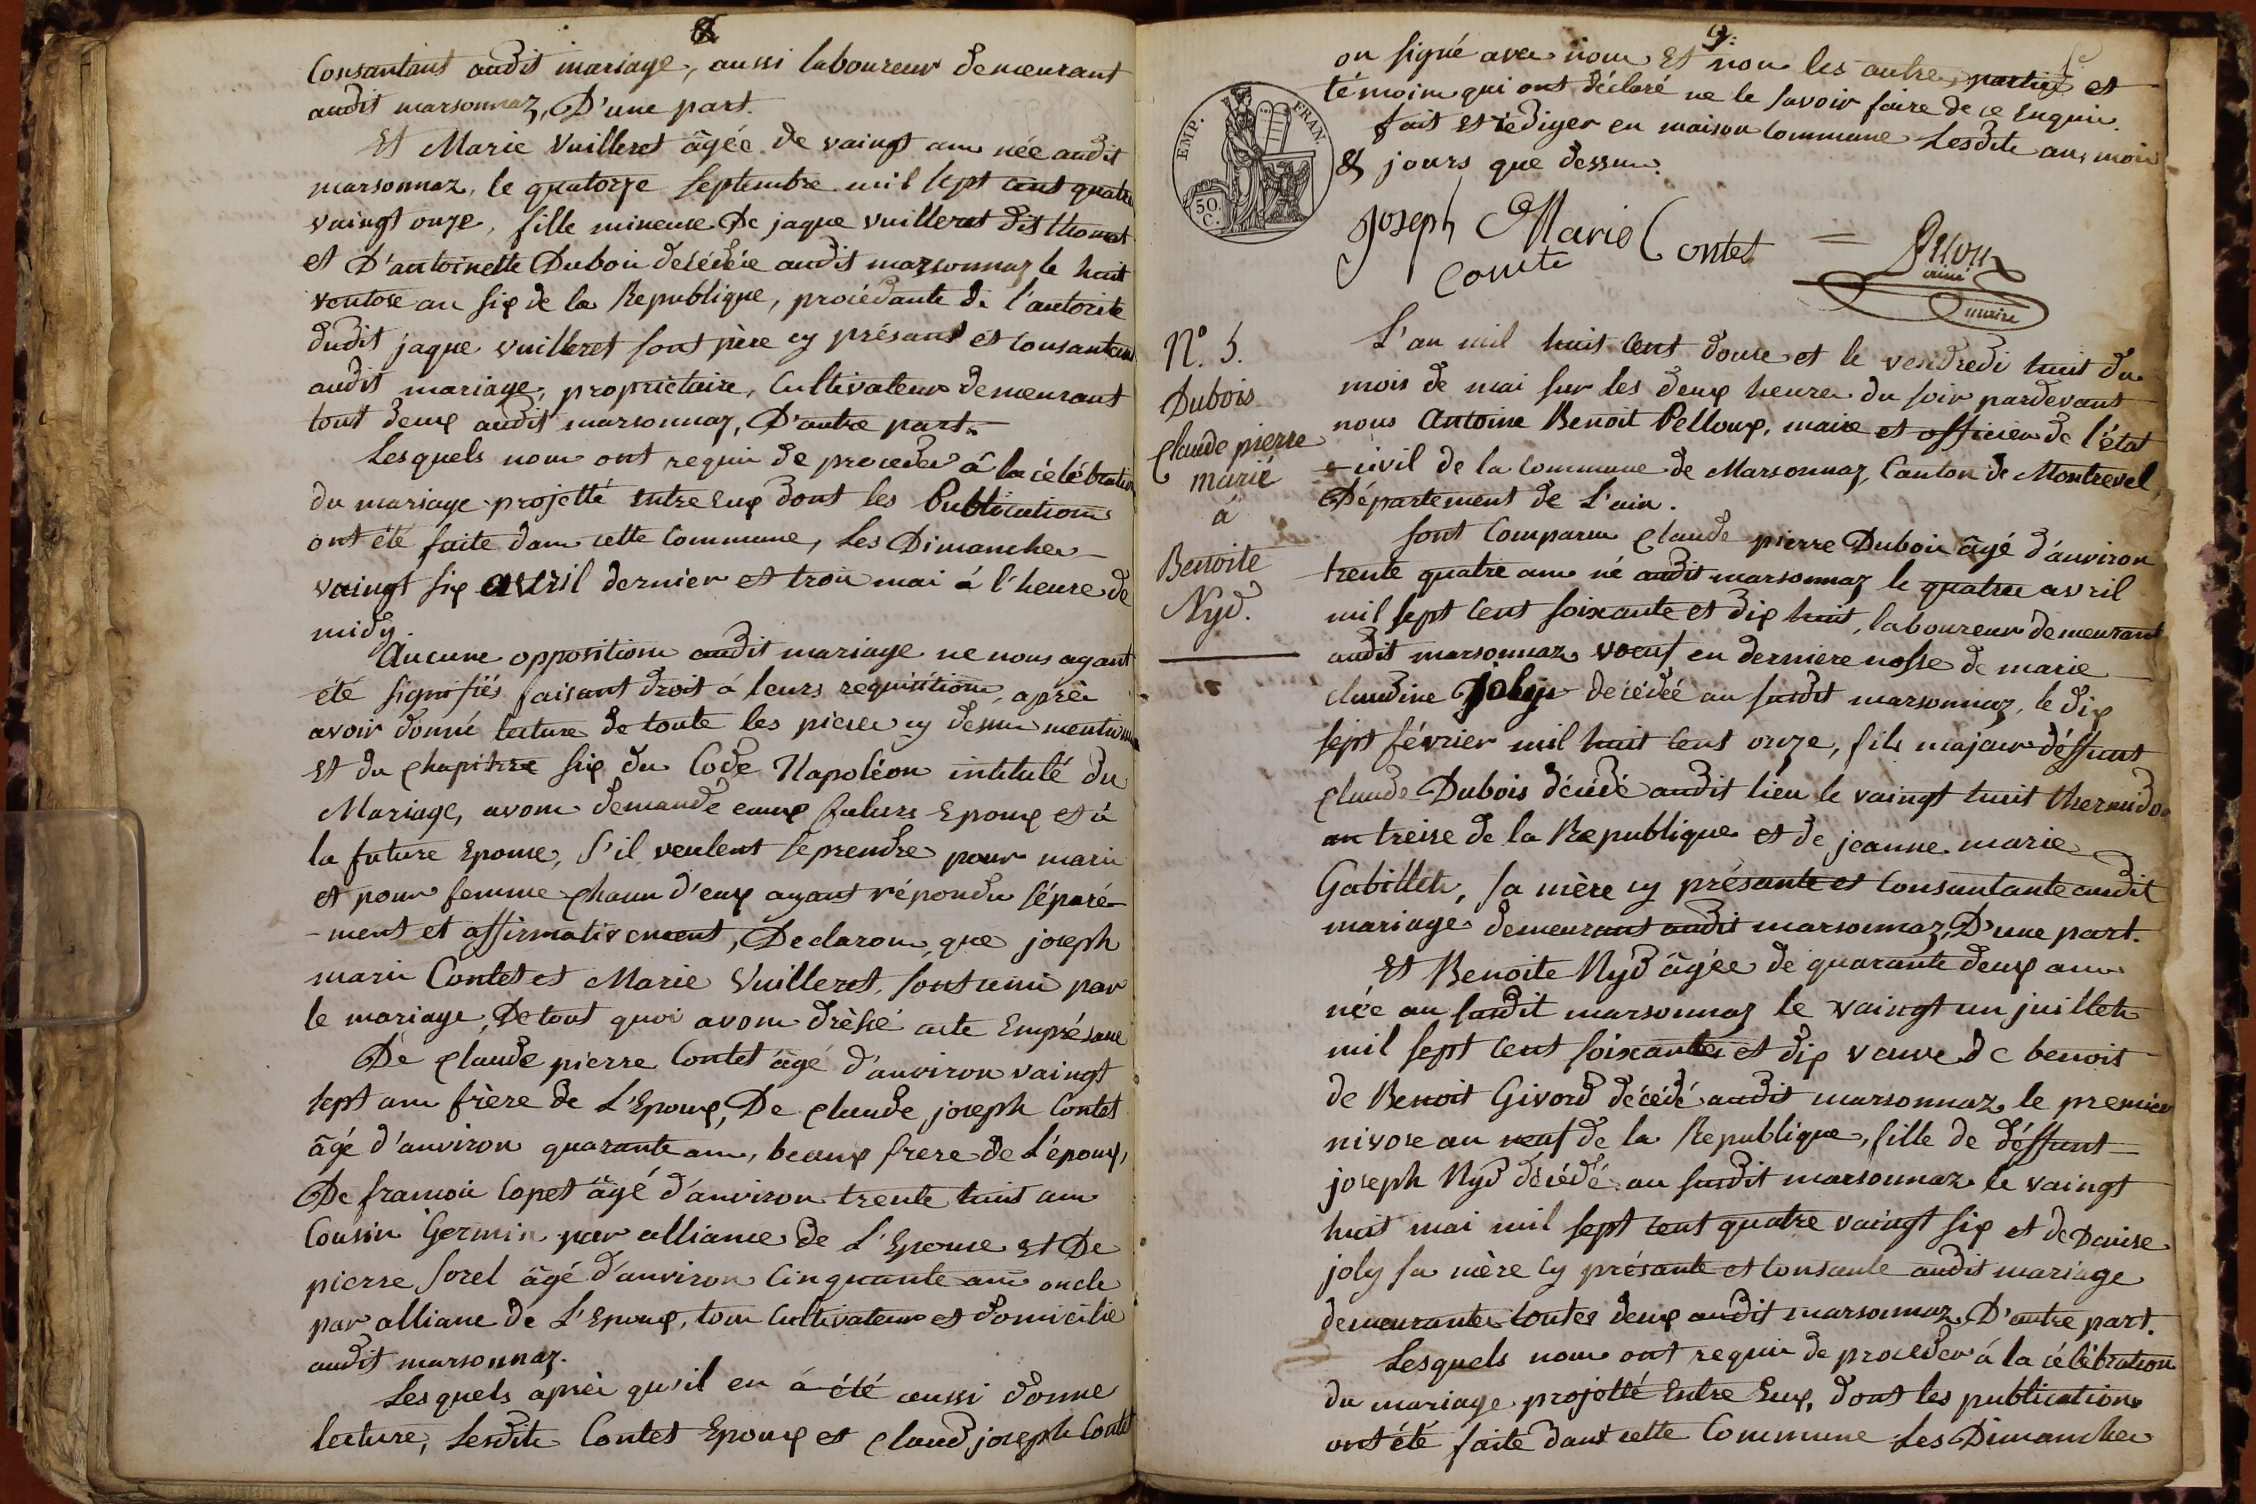 8
Consantant audit mariage, aussi laboureur demeurant
audit marsonnaz, D'une part.
Et Marie Vuilleret âgée de vaingt ans née audit
marsonnaz, le quatorze septembre mil sept cent quatre
vaingt onze, fille mineure De jaque vuilleret dit thomas
et D'antoinette Dubois décédée audit marsonnaz le huit
ventose an six de la Republique, procédante de l'autorité
dudit jaque vuilleret sont père cy présant et consantant
audit mariage, propriétaire, Cultivateur demeurant
tout deux audit marsonnaz, D'autre part.
Lesquels nous ont requis de proceder â la célébration
du mariage projetté entre Eux dont les Publications
ont été faite dans cette Commune, Les Dimanches
vaingt six avril dernier et trois mai á l'heure de
midy.
Aucune opposition audit mariage ne nous ayant
été signifiés faisant droit á leurs requisition, après
avoir donné lecture de toute les pieces cy dessus mention
Et du chapitre six du Code Napoléon intitulé du
Mariage, avons demandé eaux futurs Epoux et á
la future Epouse, S'il veulent se prendre pour maris
et pour femme chacun d'eux ayant répondu séparé-
-ment et affirmativement, Declarons que joseph
marie Contet et Marie Vuilleret, sont unis par
le mariage, De tout quoi avons drèssé acte Emprésance
De claude pierre Contet âgé d'anviron vaingt
sept ans frère de L'Epoux, De claude joseph Contet
âgé d'anviron quarante ans, beaux frere de L'époux,
De francois Copet âgé d'anviron trente huit ans
Cousin Germin par alliance de L'Epouse Et De
pierre sorel âgé d'anviron Cinquante ans oncle
par alliance de L'Epoux, tous Cultivateur et domicilié
audit marsonnaz.
Lesquels après qu'il en á été aussi donne
lecture, Lesdits Contet Epoux et claud joseph Contet
9.
on signé avec nous Et non les autres parties et
témoins qui ont déclaré ne le savoir faire de ce Enquis.
fait et rédiger en maison Commune Lesdits ans, mois
& jours que dessus.
EMP. FRAN.
50.
C.
Joseph Marie Contet
Contet
ainé
maire
N.° 5.
Dubois
Claude pierre
marié
á
Benoite
Nyd.
L'an mil huit cent douse et le vendredi huit du
mois de mai sur les deux heures du soir pardevant
nous Antoine Benoit Pelloux, maire et officier de l'état
civil de la Commune de Marsonnaz, Canton de Montrevel,
Département de L'ain.
sont Comparus Claude pierre Dubois âgé d'anviron
trente quatre ans né audit marsonnaz le quatre avril
mil sept cent soixante et dix huit, laboureur demeurant
audit marsonnaz voeuf en derniere nosse de marie
claudine joly décédeé au susdit marsonnaz, le dix
sept février mil huit cent onze, fils majeur déffunt
Claude Dubois décédé audit lieu le vaingt huit thermidor
an treise de la Republique et de jeanne marie
Gabillet, sa mère cy présante et consantante audit
mariage demeurant audit marsonnaz, D'une part.
Et Benoite Nyd âgée de quarante deux ans
née au susdit marsonnaz le vaingt un juillet
mil sept cent soixante et dix veuve de benoit
de Benoit Givord décédé audit marsonnaz le premier
nivose an neuf de la Republique, fille de déffunt
joseph Nyd décédé au susdit marsonnaz le vaingt
huit mai mil sept cent quatre vaingt six et de Denise
joly sa mère cy présante et consante audit mariage
demeurantes toutes deux audit marsonnaz, D'autre part.
Lesquels nous ont requis de proceder á la célébration
du mariage projetté Entre Eux, dont les publications
ont été faite dans cette Commune Les Dimanches